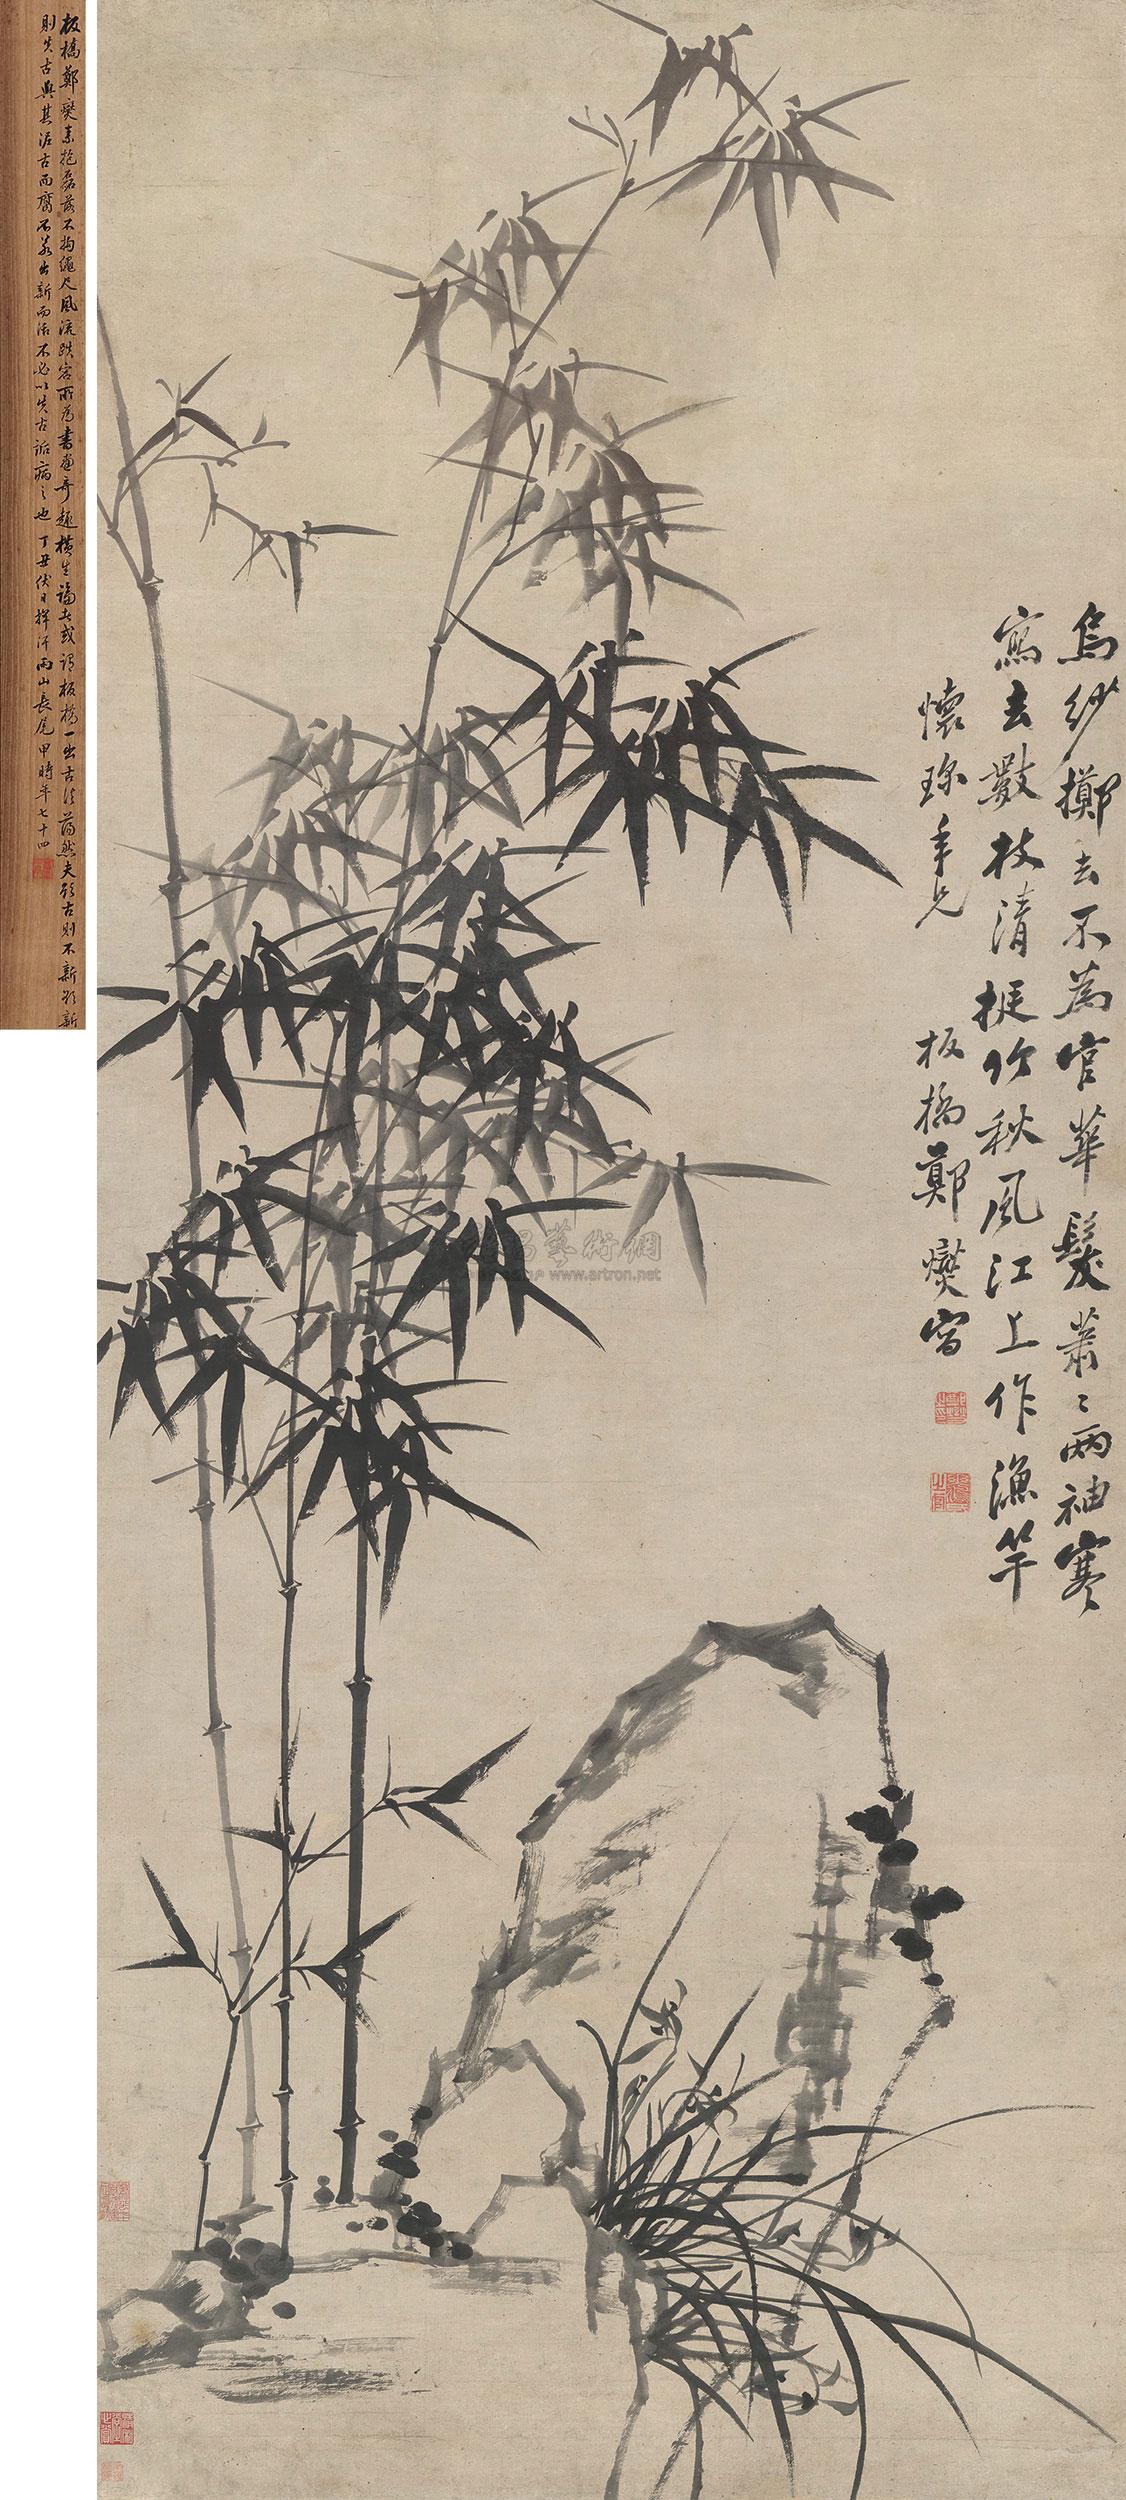 烏紗擲去不為官華髮蕭〻兩袖寒
寫去數枝清挺竹秋風江上作漁竿
懷珎年兄
板橋鄭燮寫
板橋鄭燮素抱磊落不拘繩尺風流跌宕所為書畫奇趣橫生論者或謂板橋一出古法蕩然夫欲古則不新欲新
則失古與其泥古而腐不若出新而活不必以失古詬病之也 丁丑伏日揮汗雨山長尾甲時年七十四
藝術網
www.artron.net